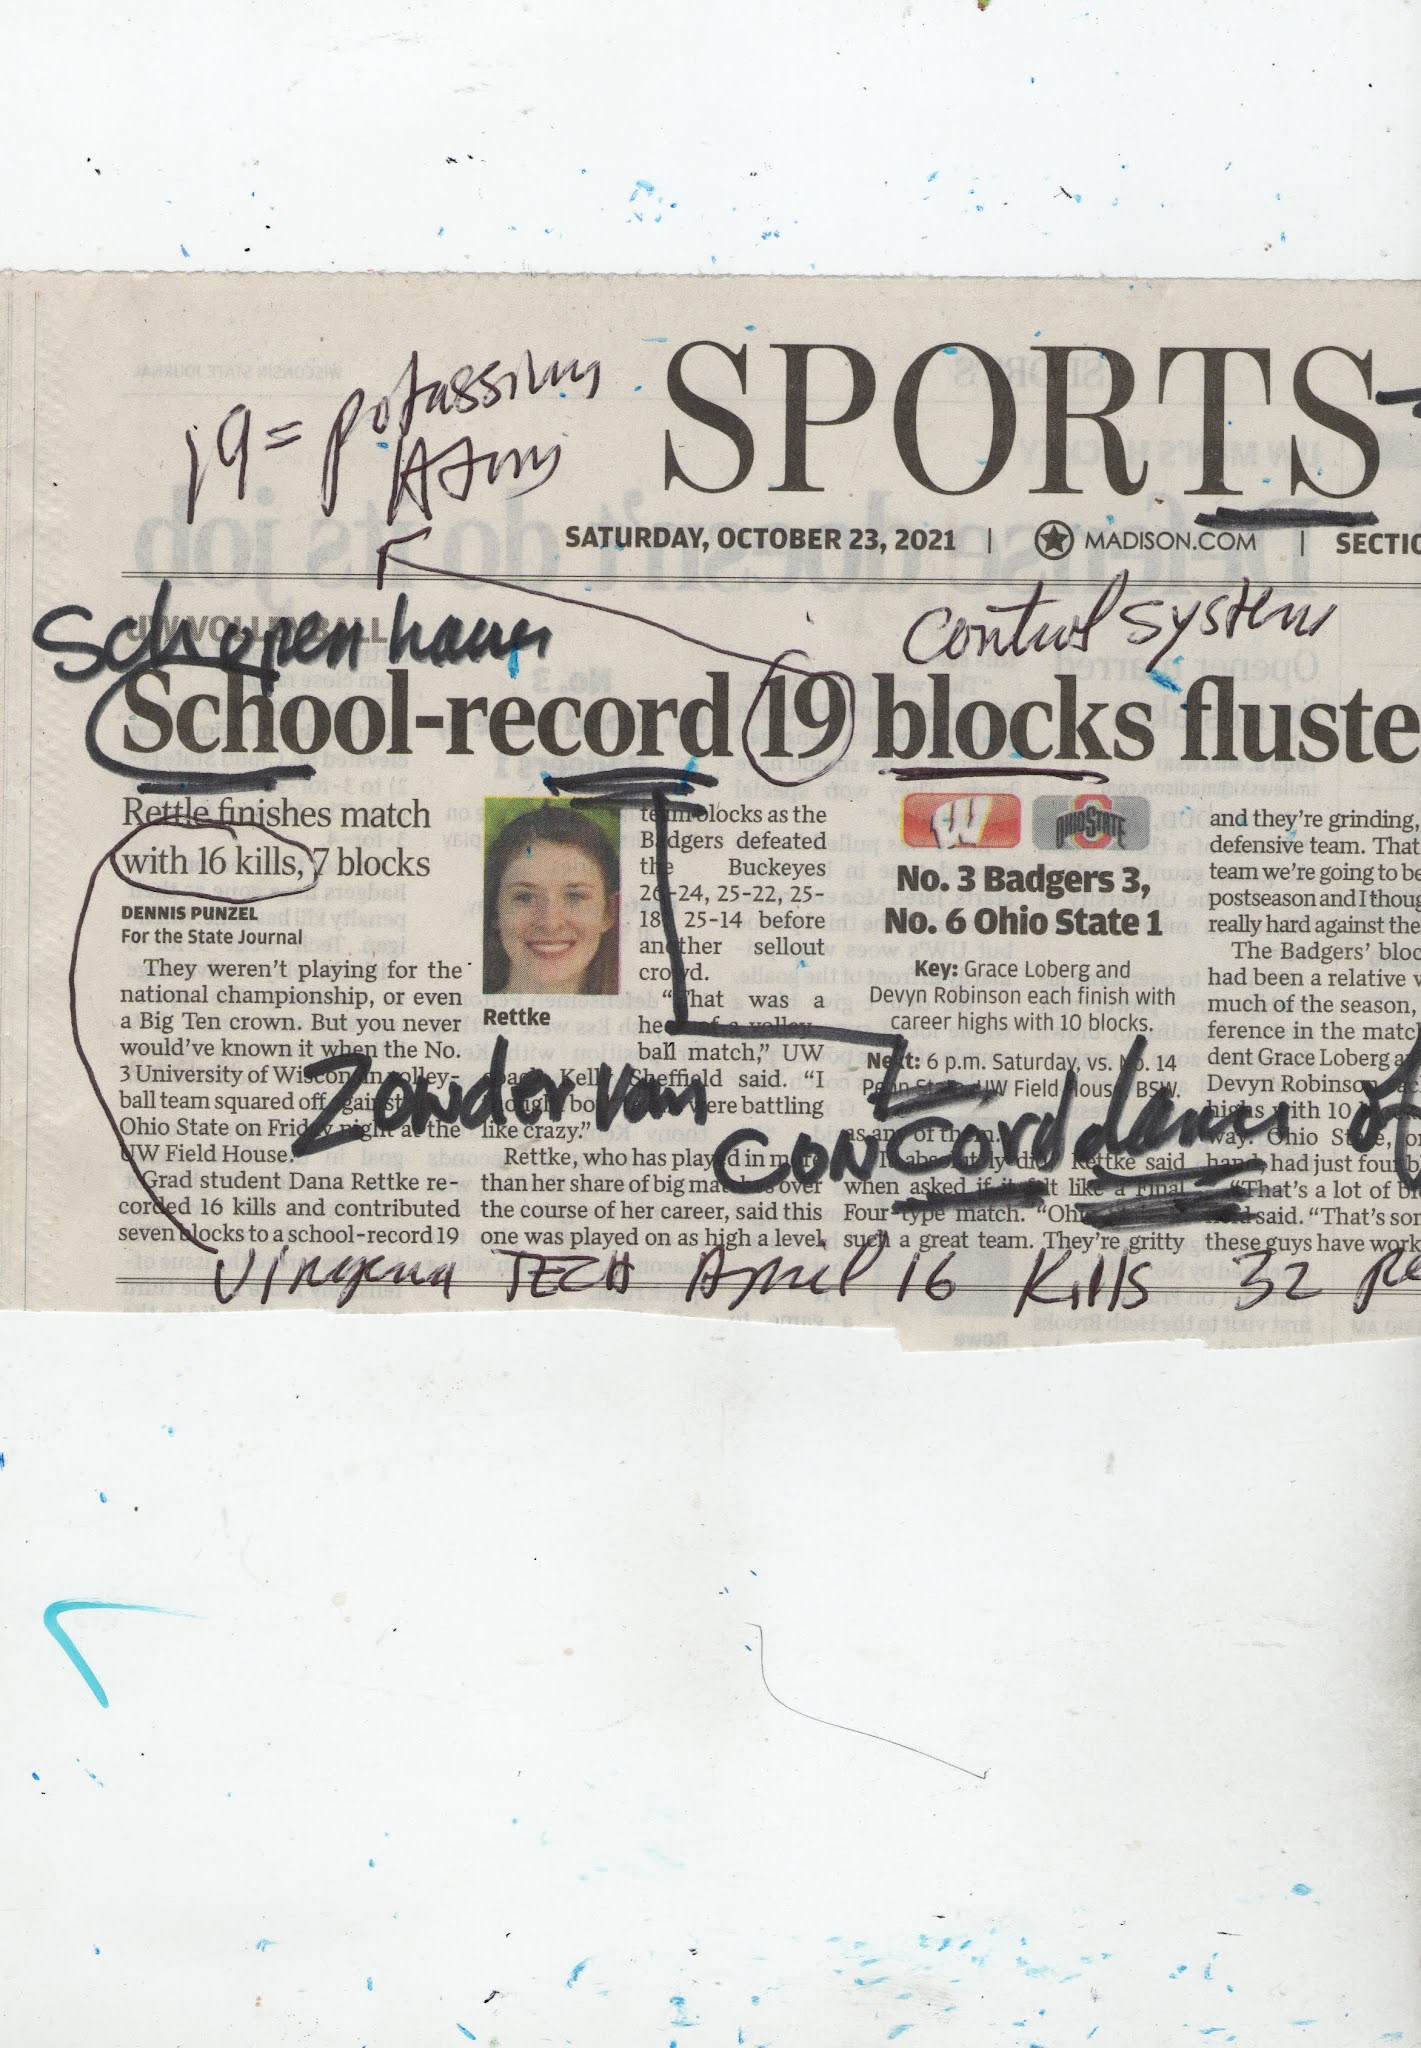 SPORTS
19 = potassium
Atom
SATURDAY, OCTOBER 23, 2021 | MADISON.COM | SECTIO
Schopenhauer
UW VOLLEYBALL
Control System
School-record 19 blocks fluste
Rettle finishes match
with 16 kills, 7 blocks
DENNIS PUNZEL
For the State Journal
They weren't playing for the
national championship, or even
a Big Ten crown. But you never
would've known it when the No.
3 University of Wisconsin volley-
ball team squared off against
Ohio State on Friday night at the
UW Field House.
Grad student Dana Rettke re-
corded 16 kills and contributed
seven blocks to a school-record 19
Rettke
team blocks as the
Badgers defeated
the Buckeyes
26-24, 25-22, 25-
18, 25-14 before
another sellout
crowd.
"That was a
heck of a volley-
ball match," UW
coach Kelly Sheffield said. "I
thought both were battling
like crazy."
Rettke, who has played in more
than her share of big matches over
the course of her career, said this
one was played on as high a level
OHIO STATE
No. 3 Badgers 3,
No. 6 Ohio State 1
Key: Grace Loberg and
Devyn Robinson each finish with
career highs with 10 blocks.
Next: 6 p.m. Saturday, vs. No. 14
Penn State, UW Field House, BSW.
as any of them.
"It absolutely did," Rettke said
when asked if it felt like a Final
Four-type match. "Ohio
such a great team. They're gritty
and they're grinding,
defensive team. That
team we're going to be
postseason and I thoug
really hard against the
The Badgers' bloc
had been a relative
much of the season,
ference in the match
dent Grace Loberg a
Devyn Robinson
highs with 10
way. Ohio State, on
hand, had just four b
"That's a lot of bl
said. "That's som
these guys have work
Zondervan
Concordance of
Virginia TECH April 16 Kills 32